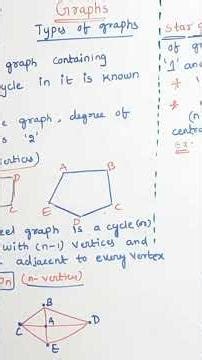 Graphs
Types of graphs
graph containing
cycle in it is known
graph, degree of
'2'
A
B
C
D
E
graph is a cycle(n)
with (n-1) vertices and
adjacent to every vertex
(n-vertices)
B
A
C
D
E
Star
of
'1' and
Ex: